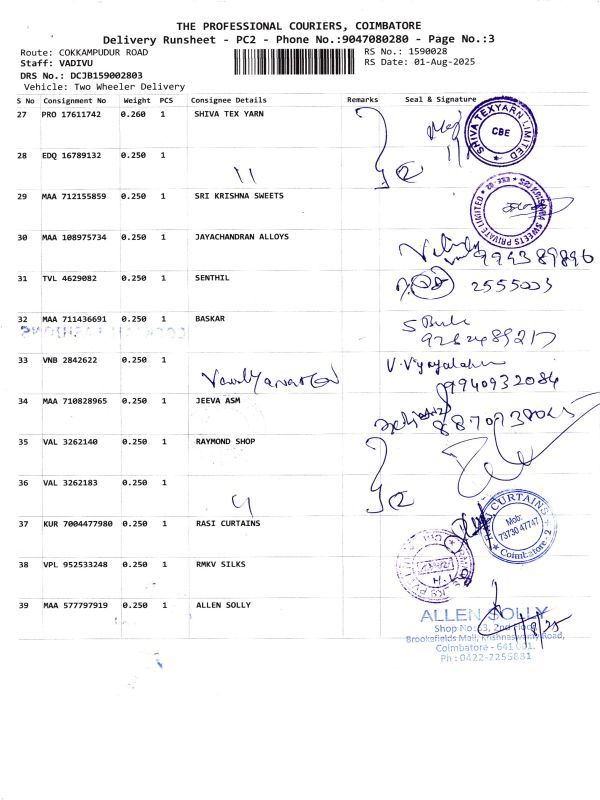 THE PROFESSIONAL COURIERS, COIMBATORE
Delivery Runsheet - PC2 - Phone No.:9047080280 - Page No.:3
Route: COKKAMPUDUR ROAD
RS No.: 1590028
Staff: VADIVU
RS Date: 01-Aug-2025
DRS No.: DCJB159002803
Vehicle: Two Wheeler Delivery
S No Consignment No Weight PCS Consignee Details Remarks Seal & Signature
27 PRO 17611742 0.260 1 SHIVA TEX YARN
SHIVA TEXYARN LIMITED
CBE
28 EDQ 16789132 0.250 1
29 MAA 712155859 0.250 1 SRI KRISHNA SWEETS
SRI KRISHNA SWEETS PRIVATE LIMITED
30 MAA 108975734 0.250 1 JAYACHANDRAN ALLOYS
31 TVL 4629082 0.250 1 SENTHIL
2555003
32 MAA 711436691 0.250 1 BASKAR
33 VNB 2842622 0.250 1
9940932084
34 MAA 710828965 0.250 1 JEEVA ASM
35 VAL 3262140 0.250 1 RAYMOND SHOP
36 VAL 3262183 0.250 1
37 KUR 7004477980 0.250 1 RASI CURTAINS
CURTAINS
Mob:
73730 47747
Coimbatore - 2
38 VPL 952533248 0.250 1 RMKV SILKS
39 MAA 577797919 0.250 1 ALLEN SOLLY
ALLEN SOLLY
Shop No: 3, 2nd Floor
Brookefields Mall, Krishnaswamy Road,
Coimbatore - 641 001.
Ph : 0422-2255881